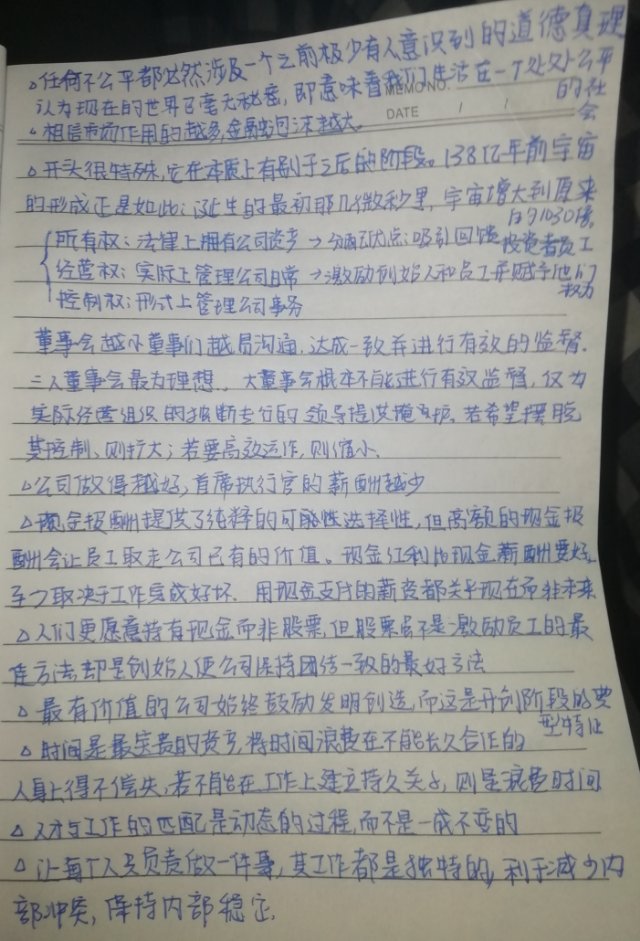 。任何不公平都必然涉及一个之前极少有人意识到的道德真理
认为现在的世界了毫无秘密，即意味着我们生活在一个处处公平
的社会
MEMO NO.
DATE / /
。相信市场作用的越多，金融泡沫越大。
。开头很特殊，它在本质上有别于之后的阶段。138亿年前宇宙
的形成正是如此：诞生的最初那几微秒里，宇宙增大到原来
的1030倍。
所有权：法律上拥有公司资产→分配状态：吸引回馈投资者员工
经营权：实际上管理公司日常→激励创始人和员工并赋予他们
权力
控制权：形式上管理公司事务
董事会越小董事们越易沟通，达成一致并进行有效的监督.
三人董事会最为理想、大董事会根本不能进行有效监督，仅为
实际经营组织的独断专行的领导提供掩护。若希望摆脱
其控制、则扩大；若要高效运作，则缩小.
△公司做得越好，首席执行官的薪酬越少
△现金报酬提供了纯粹的可能性选择性，但高额的现金报
酬会让员工取走公司已有的价值。现金红利比现金薪酬要好，
至少取决于工作完成好坏．用现金支付的薪资都关乎现在而非未来
△人们更愿意持有现金而非股票，但股票虽不是激励员工的最
佳方法却是创始人使公司保持团结一致的最好方法
△最有价值的公司始终鼓励发明创造，而这是开创阶段的典
型特征
△时间是最宝贵的资产，将时间浪费在不能长久合作的
人身上得不偿失，若不能在工作上建立持久关系，则是浪费时间
△人才与工作的匹配是动态的过程，而不是一成不变的
△让每个人只负责做一件事，其工作都是独特的，利于减少内
部冲突，保持内部稳定.